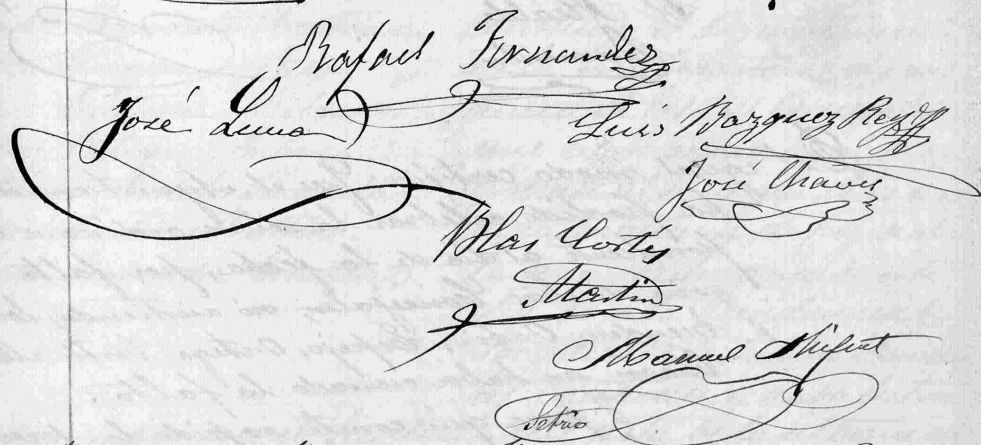 Rafael Fernandez
José Luna
Luis Bazquez Reyes
José Chaves
Blas Cortés
Martin
Manuel
Setrio